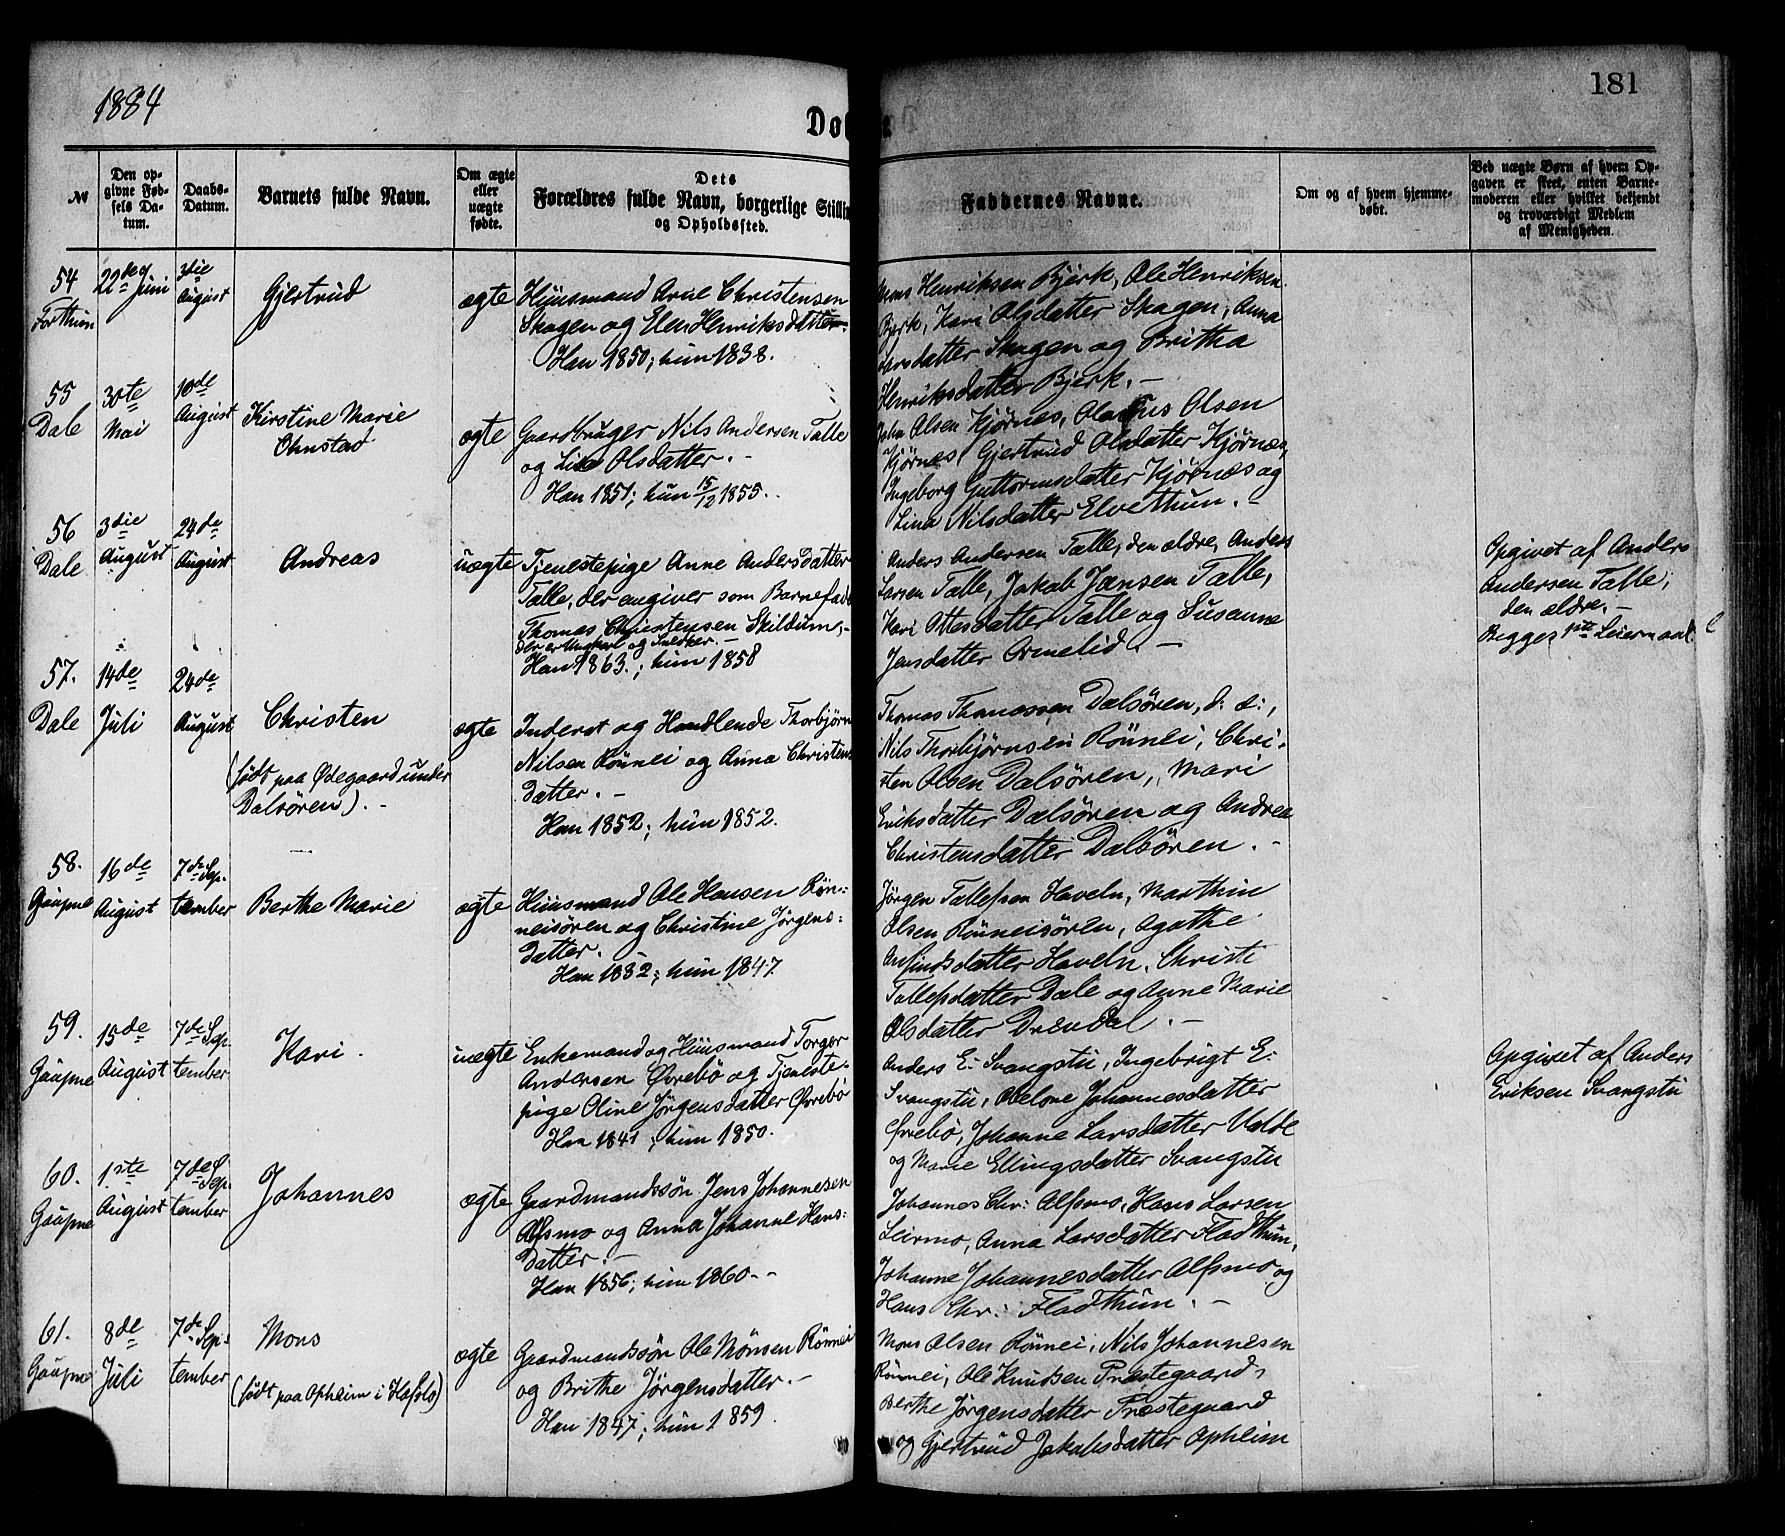 1884
181
Døbte
№
Den opgivne Fødsels Datum.
Daabs-Datum.
Barnets fulde Navn.
Om ægte eller uægte fødte.
Dets Forældres fulde Navn, borgerlige Stilling og Opholdssted.
Faddernes Navne.
Om og af hvem hjemmedøbt.
Ved uægte Børn af hvem Opgaven er skeet, enten Barnemoderen eller hvilket bekjendt og troværdigt Medlem af Menigheden.
54
Forthun
22de Juni
3die August
Gjertrud
ægte
Huusmand Arne Christensen
Skagen og Elen Henriksdatter.
Han 1850; hun 1838.
Mons Henriksen Bjerk, Ole Henriksen
Bjerk, Kari Olsdatter Skagen, Anna
Larsdatter Skagen og Britha
Henriksdatter Bjerk. –
55
Dale
30te Mai
10de August
Kirstine Marie
Ohnstad
ægte
Gaardbruger Nils Andersen Talle
og Lisa Olsdatter. –
Han 1851; hun 15/12 1855.
John Olsen Kjørnes, Olaus Olsen
Kjørnes, Gjertrud Olsdatter Kjørnes,
Ingeborg Guttormsdatter Kjørnes og
Lina Nilsdatter Elvethun. –
56
Dale
3die August
24de August
Andreas
uægte
Tjenestepige Anne Andersdatter
Talle, der angiver som Barnefader
Thomas Christensen Skildum, –
der er Ungkarl og Snedker. –
Han 1863.; hun 1858
Anders Andersen Talle, den ældre, Anders
Larsen Talle, Jakob Jansen Talle,
Kari Ottesdatter Talle og Susanne
Jensdatter Ormelid. –
Opgivet af Anders
Andersen Talle,
den ældre. –
Begges 1ste Leiermaal
57.
Dale
14de Juli
24de August
Christen
(født paa Ødegaard under
Dalsøren). –
ægte
Inderst og Handlende Thorbjørn
Nilsen Rønnei og Anna Christens
datter. –
Han 1852; hun 1852.
Thomas Thomassen Dalsøren, d: æ:,
Nils Thorbjørnsen Rønnei, Chri-
sten Olsen Dalsøren, Mari
Eriksdatter Dalsøren og Andrea
Christensdatter Dalsøren. –
58.
Gaupne
16de August
7de September
Berthe Marie
ægte
Huusmand Ole Hansen Røn-
neisøren og Christine Jørgens-
datter.
Han 1832; hun 1847
Jørgen Tollefsen Haveln, Marthin
Olsen Rønneisøren, Agathe
Anfindsdatter Haveln, Christi
Tollefsdatter Dale og Anne Marie
Olsdatter Drændal. –
59.
Gaupne
15de August
7de September
Kari.
uægte
Enkemand og Huusmand Torger
Andersen Øvrebø og Tjeneste-
pige Oline Jørgensdatter Øvrebø
Han 1841; hun 1850.
Anders E: Svangstu, Ingebrigt E:
Svangstu, Abelone Johannesdatter
Øvrebø, Johanne Larsdatter Molde
og Marie Ellingsdatter Svangstu
Opgivet af Anders
Eriksen Svangstu
60.
Gaupne
1ste August
7de September
Johannes
ægte
Gaardmandssøn Jens Johannesen
Alfsmo og Anna Johanne Hans-
datter. –
Han 1856; hun 1860. –
Johannes Chr: Alfsmo, Hans Larsen
Leirmo, Anna Larsdatter Fladthun,
Johanne Johannesdatter Alfsmo og
Hans Chr: Fladthun. –
61.
Gaupne
8de Juli
7de September
Mons
(født paa Opheim i Hafslo)
ægte
Gaardmandssøn Ole Monsen Rønnei
og Brithe Jørgensdatter. –
Han 1847; hun 1859.
Mons Olsen Rønnei, Nils Johannesen
Rønnei, Ole Knudsen Præstegaard,
Berthe Jørgensdatter Præstegaard
og Gjertrud Jakobsdatter Opheim